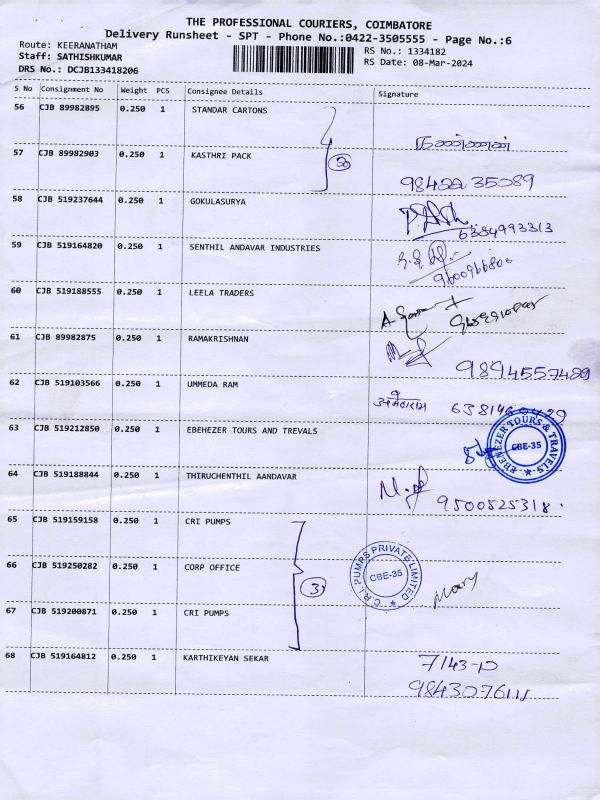 THE PROFESSIONAL COURIERS, COIMBATORE
Delivery Runsheet - SPT - Phone No.:0422-3505555 - Page No.:6
Route: KEERANATHAM
RS No.: 1334182
Staff: SATHISHKUMAR
RS Date: 08-Mar-2024
DRS No.: DCJB133418206
S No Consignment No Weight PCS Consignee Details Signature
56 CJB 89982895 0.250 1 STANDAR CARTONS
கண்ணன்
57 CJB 89982903 0.250 1 KASTHRI PACK
2
98422 35089
58 CJB 519237644 0.250 1 GOKULASURYA
6384993313
59 CJB 519164820 0.250 1 SENTHIL ANDAVAR INDUSTRIES
9600966800
60 CJB 519188555 0.250 1 LEELA TRADERS
61 CJB 89982875 0.250 1 RAMAKRISHNAN
9894557489
62 CJB 519103566 0.250 1 UMMEDA RAM
63 CJB 519212850 0.250 1 EBEHEZER TOURS AND TREVALS
EBENEZER TOURS & TRAVELS
CBE-35
64 CJB 519188844 0.250 1 THIRUCHENTHIL AANDAVAR
9500825318
65 CJB 519159158 0.250 1 CRI PUMPS
66 CJB 519250282 0.250 1 CORP OFFICE
3
C.R.I. PUMPS PRIVATE LIMITED
CBE-35
Mary
67 CJB 519200871 0.250 1 CRI PUMPS
68 CJB 519164812 0.250 1 KARTHIKEYAN SEKAR
7/143-D